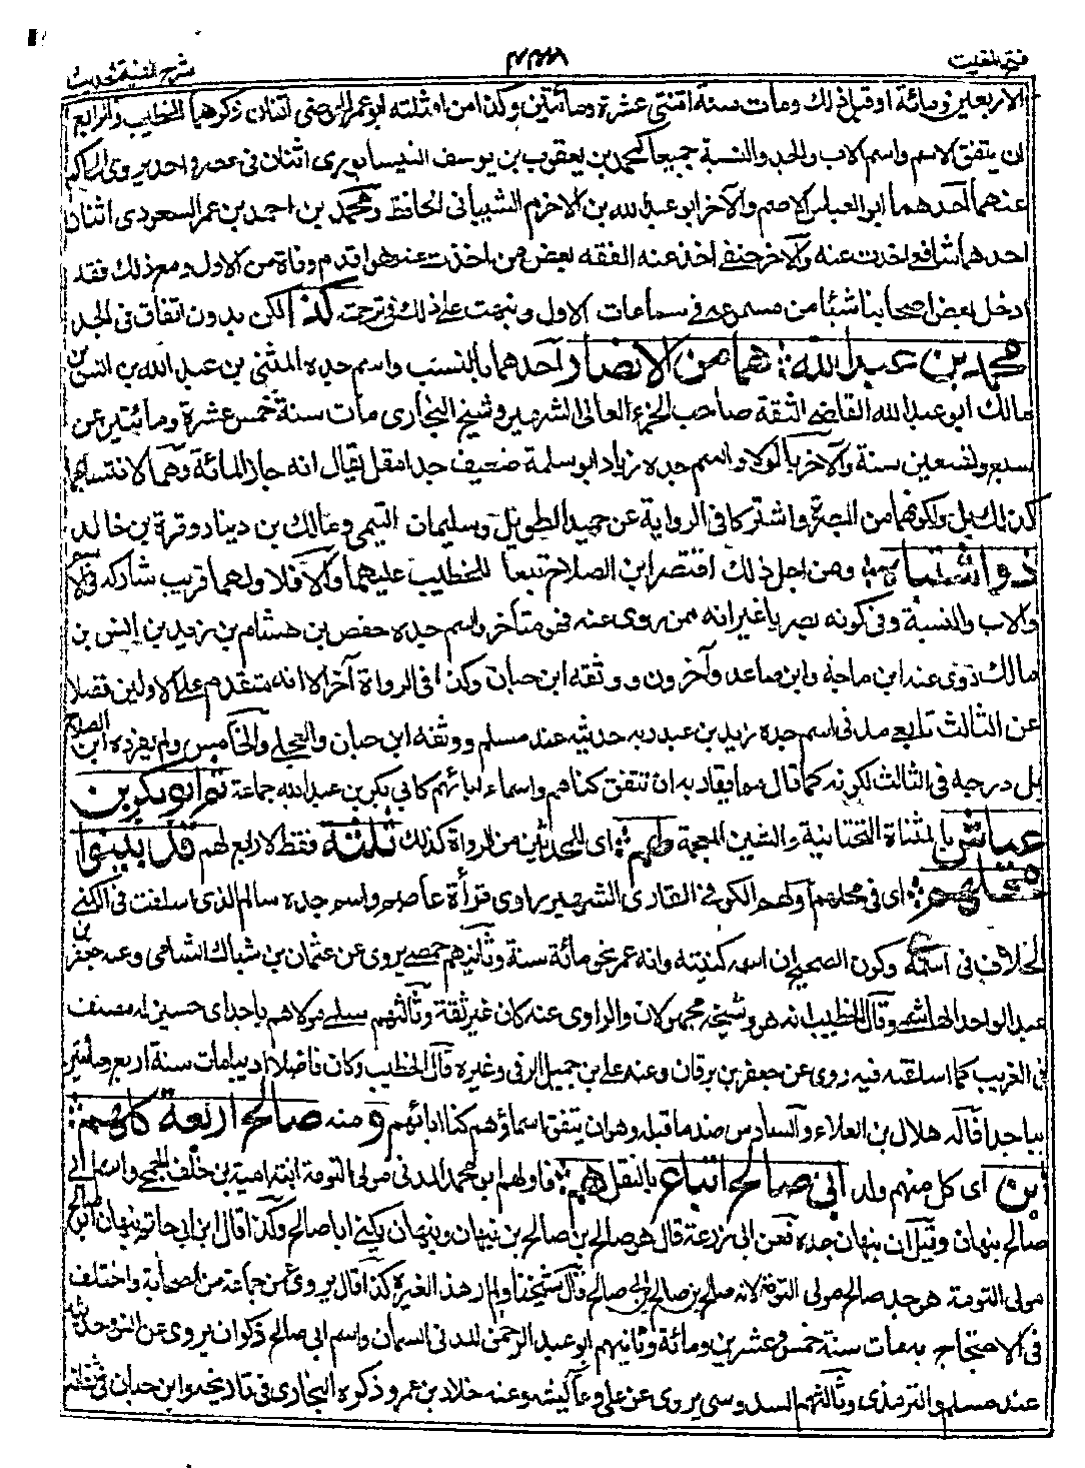 فتح المغيث ٤٤٨ شرح الفية الحديث
الاربعين ومائة اوقبل ذلك ومات سنة اثنتى عشرة ومائتين وكذا من امثلته ابو عمر الحوضى اثنان ذكرهما الخطيب والرابع
ان يتفق الاسم واسم الاب والجد والنسبة جميعا كمحمد بن يعقوب بن يوسف النيسابورى اثنان فى عصر واحد يروى الحاكم
عنهما احدهما ابو العباس الاصم والآخر ابو عبد الله بن الاخرم الشيبانى الحافظ وكمحمد بن احمد بن عمر السعودى اثنان
احدهما شافعى اخذت عنه والآخر حنفى اخذ عنه الفقه بعض من اخذت عنه هو اقدم وفاة من الاول ومع ذلك فقد
ادخل بعض اصحابنا شيئا من مسموعه فى سماعات الاول ونبهت على ذلك فى ترجمته كذا لكن بدون اتفاق فى الجد
محمد بن عبد الله هما من الانصار احدهما بالنسب واسم جده المثنى بن عبد الله بن انس بن
مالك ابو عبد الله القاضى الثقة صاحب الجزء العالى الشهير وشيخ البخارى مات سنة خمس عشرة ومائتين عن
سبع وتسعين سنة والآخر بالولاء واسم جده زياد ابو سلمة ضعيف جدا يقال انه جاز المائة وهما لانتسابهما
كذلك بل ولكونهما من البصرة واشتركا فى الرواية عن حميد الطويل وسليمان التيمى ومالك بن دينار وقرة بن خالد
ذو اشتباه ومن اجل ذلك اقتصر ابن الصلاح تبعا للخطيب عليهما والا فلا ولهما قريب شاركه فى الاسم
والاب والنسبة وفى كونه بصريا غير انه ممن روى عنه فهو متأخر واسم جده حفص بن هشام بن زيد بن انس بن
مالك روى عنه ابن ماجه وابن صاعد وآخرون ووثقه ابن حبان وكذا فى الرواة آخر الا انه متقدم على الاولين فضلا
عن الثالث تابعى مدنى اسم جده زيد بن عبد ربه حديثه عند مسلم ووثقه ابن حبان والعجلى والخامس ولم يفرده ابن الصلاح
بل درجه فى الثالث لكونه كما قال مما يقاربه ان تتفق كناهم واسماء آبائهم كابى بكر بن عبد الله جماعة ثم ابو بكر بن
عياش بالمثناة التحتانية والشين المعجمة ولهم اى المحدثين من الرواة كذلك ثلثة فقط لا رابع لهم قد بينوا
محلهم اى فى محلهم اولهم الكوفى القارى الشهير راوى قرأة عاصم واسم جده سالم الذى اسلفت فى الكنى
الخلاف فى اسمه وكون الصحيح ان اسمه كنيته وانه عمر نحو مائة سنة وثانيهم حمصى يروى عن عثمان بن شباك الشامى وعنه جعفر بن
عبد الواحد الهاشمى وقال الخطيب انه هو وشيخه مجهولان والراوى عنه كان غير ثقة وثالثهم سلمى مولاهم باجداى حسين له مصنف
فى الغريب كما اسلفته فيه روى عن جعفر بن برقان وعنه على بن جميل الرقى وغيره قال الخطيب وكان فاضلا اديبا مات سنة اربع ومائتين
بباجدا قاله هلال بن العلاء والسادس ضد ما قبله وهو ان يتفق اسماؤهم كنا ابائهم ومنه صالح اربعة كلهم
ابن اى كل منهم ولد ابى صالح اتباع بالنقل هم فاولهم ابو محمد المدنى مولى التومة ابنة امية بن خلف الجمحى واسم ابى
صالح نبهان وقيل ان نبهان جده فعن ابى زرعة قال هو صالح بن صالح بن نبهان ونبهان يكنى ابا صالح وكذا قال ابن ابى حاتم نبهان ابو صالح
مولى التومة هو جد صالح مولى التومة لانه صالح بن صالح قال شيخنا ولم ار هذا لغيره كذا قال يروى عن جماعة من الصحابة واختلف
فى الاحتجاج به مات سنة خمس وعشرين ومائة وثانيهم ابو عبد الرحمن المدنى السمان واسم ابى صالح ذكوان يروى عن انس وحديثه
عند مسلم والترمذى وثالثهم السدوسى يروى عن على وعائشة وعنه خلاد بن عمرو ذكره البخارى فى تاريخه وابن حبان فى ثقاته